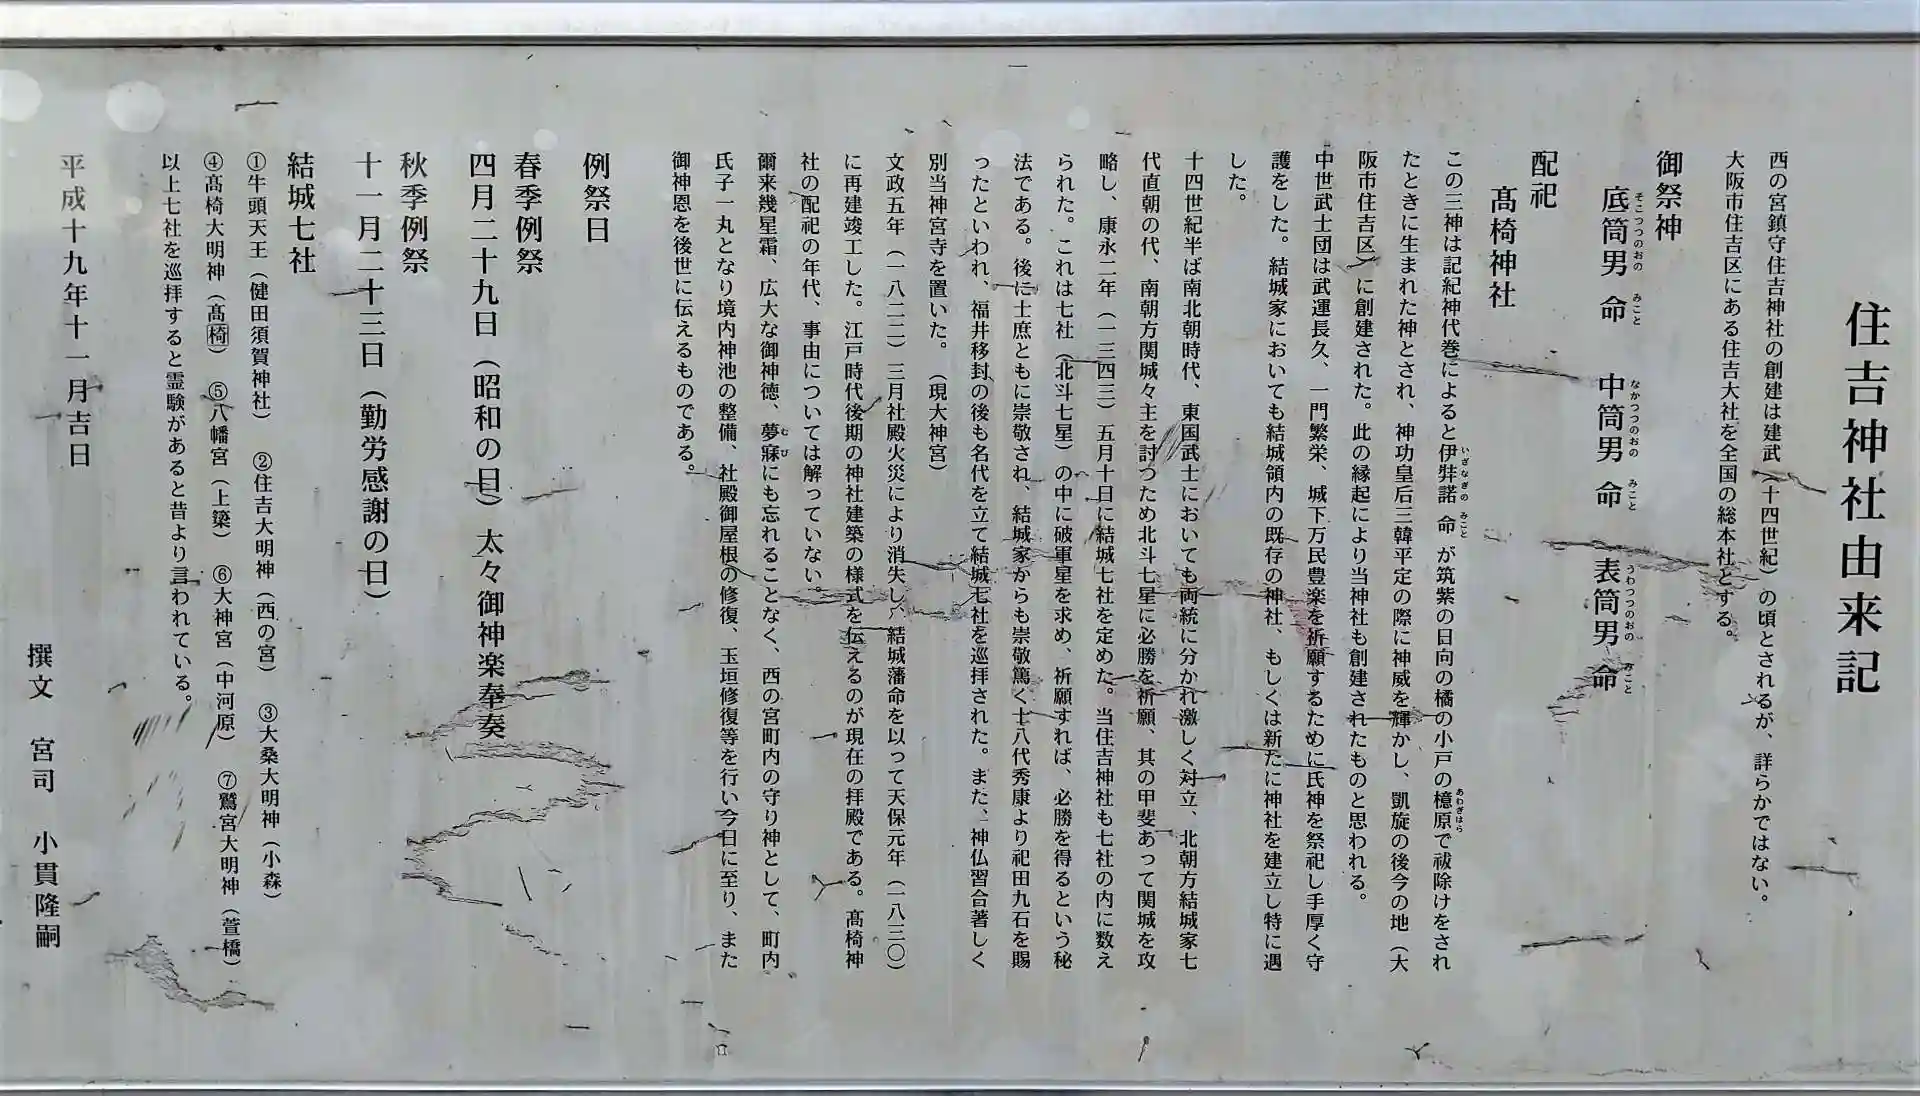 住吉神社由来記
西の宮鎮守住吉神社の創建は建武（十四世紀）の頃とされるが、詳らかではない。
大阪市住吉区にある住吉大社を全国の総本社とする。
御祭神
底筒男命 中筒男命 表筒男命
そこつつのおの みこと なかつつのおの みこと うわつつのおの みこと
配祀
髙椅神社
この三神は記紀神代巻によると伊弉諾命が筑紫の日向の橘の小戸の檍原で祓除けをされ
いざなぎの みこと あわぎはら
たときに生まれた神とされ、神功皇后三韓平定の際に神威を輝かし、凱旋の後今の地（大
阪市住吉区）に創建された。此の縁起により当神社も創建されたものと思われる。
中世武士団は武運長久、一門繁栄、城下万民豊楽を祈願するために氏神を祭祀し手厚く守
護をした。結城家においても結城領内の既存の神社、もしくは新たに神社を建立し特に遇
した。
十四世紀半ば南北朝時代、東国武士においても両統に分かれ激しく対立、北朝方結城家七
代直朝の代、南朝方関城々主を討つため北斗七星に必勝を祈願、其の甲斐あって関城を攻
略し、康永二年（一三四三）五月十日に結城七社を定めた。当住吉神社も七社の内に数え
られた。これは七社（北斗七星）の中に破軍星を求め、祈願すれば、必勝を得るという秘
法である。後に士庶ともに崇敬され、結城家からも崇敬篤く十八代秀康より祀田九石を賜
ったといわれ、福井移封の後も名代を立て結城七社を巡拝された。また、神仏習合著しく
別当神宮寺を置いた。（現大神宮）
文政五年（一八二二）三月社殿火災により消失し、結城藩命を以って天保元年（一八三〇）
に再建竣工した。江戸時代後期の神社建築の様式を伝えるのが現在の拝殿である。髙椅神
社の配祀の年代、事由については解っていない。
爾来幾星霜、広大な御神徳、夢寐にも忘れることなく、西の宮町内の守り神として、町内
むび
氏子一丸となり境内神池の整備、社殿御屋根の修復、玉垣修復等を行い今日に至り、また
御神恩を後世に伝えるものである。
例祭日
春季例祭
四月二十九日（昭和の日）太々御神楽奉奏
秋季例祭
十一月二十三日（勤労感謝の日）
結城七社
①牛頭天王（健田須賀神社） ②住吉大明神（西の宮） ③大桑大明神（小森）
④髙椅大明神（髙椅） ⑤八幡宮（上簗） ⑥大神宮（中河原） ⑦鷲宮大明神（萱橋）
以上七社を巡拝すると霊験があると昔より言われている。
平成十九年十一月吉日
撰文 宮司 小貫隆嗣